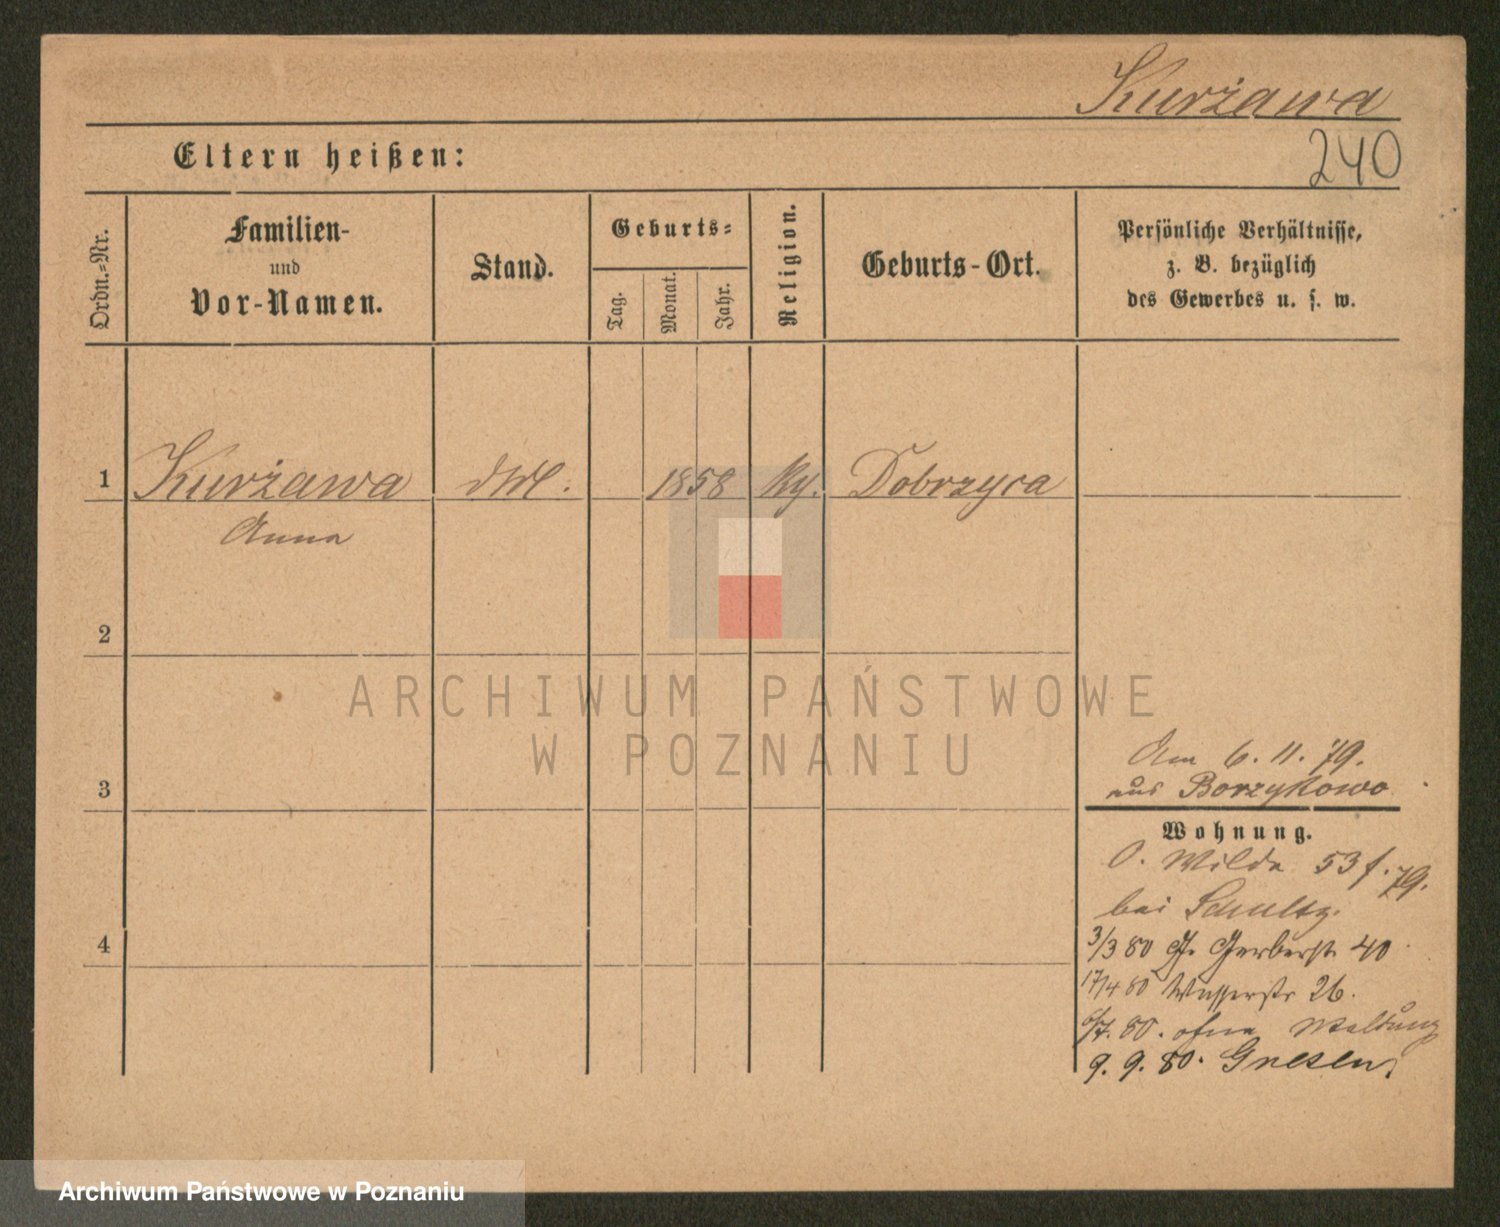 Kurżawa
240
Eltern heißen:
Ordn.=Nr.
Familien-
und
Vor-Namen.
Stand.
Geburts=
Tag.
Monat.
Jahr.
Religion.
Geburts-Ort.
Persönliche Verhältnisse,
z. B. bezüglich
des Gewerbes u. s. w.
1 Kurżawa 1858 Dobrzyca
Anna
2
ARCHIWUM PAŃSTWOWE
W POZNANIU
Am 6. 11. 79.
aus Borzykowo
3
Wohnung.
O. Wilda 53 f. 79.
bei Schultz.
4
3/3 80 G. Gerberstr 40
17/4 80 Wasserstr 26.
6/7. 80. ohne Meldung
9. 9. 80. Gnesen.
Archiwum Państwowe w Poznaniu